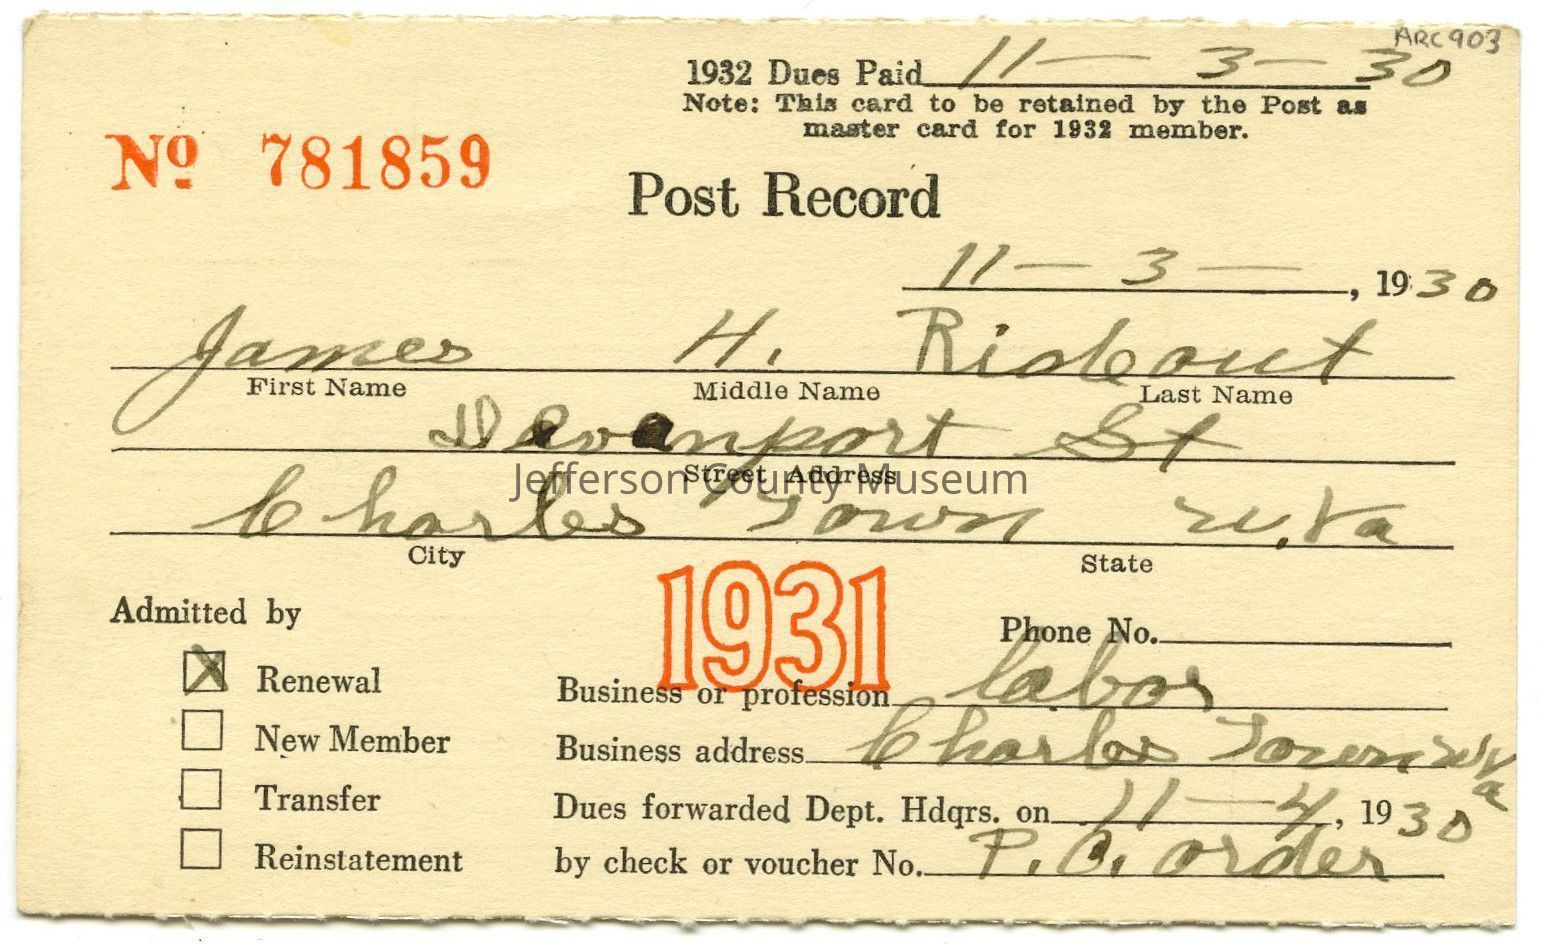 ARC903
1932 Dues Paid 11 — 3 — 30
Note: This card to be retained by the Post as
master card for 1932 member.
No 781859
Post Record
11 — 3 — , 1930
James H. Rideout
First Name Middle Name Last Name
Davenport St
Street Address
Jefferson County Museum
Charles Town W.Va
City State
1931
Admitted by
Phone No.
X Renewal
Business or profession labor
New Member
Business address Charles Town W Va
Transfer
Dues forwarded Dept. Hdqrs. on 11 — 4 , 1930
Reinstatement
by check or voucher No. P.O. order